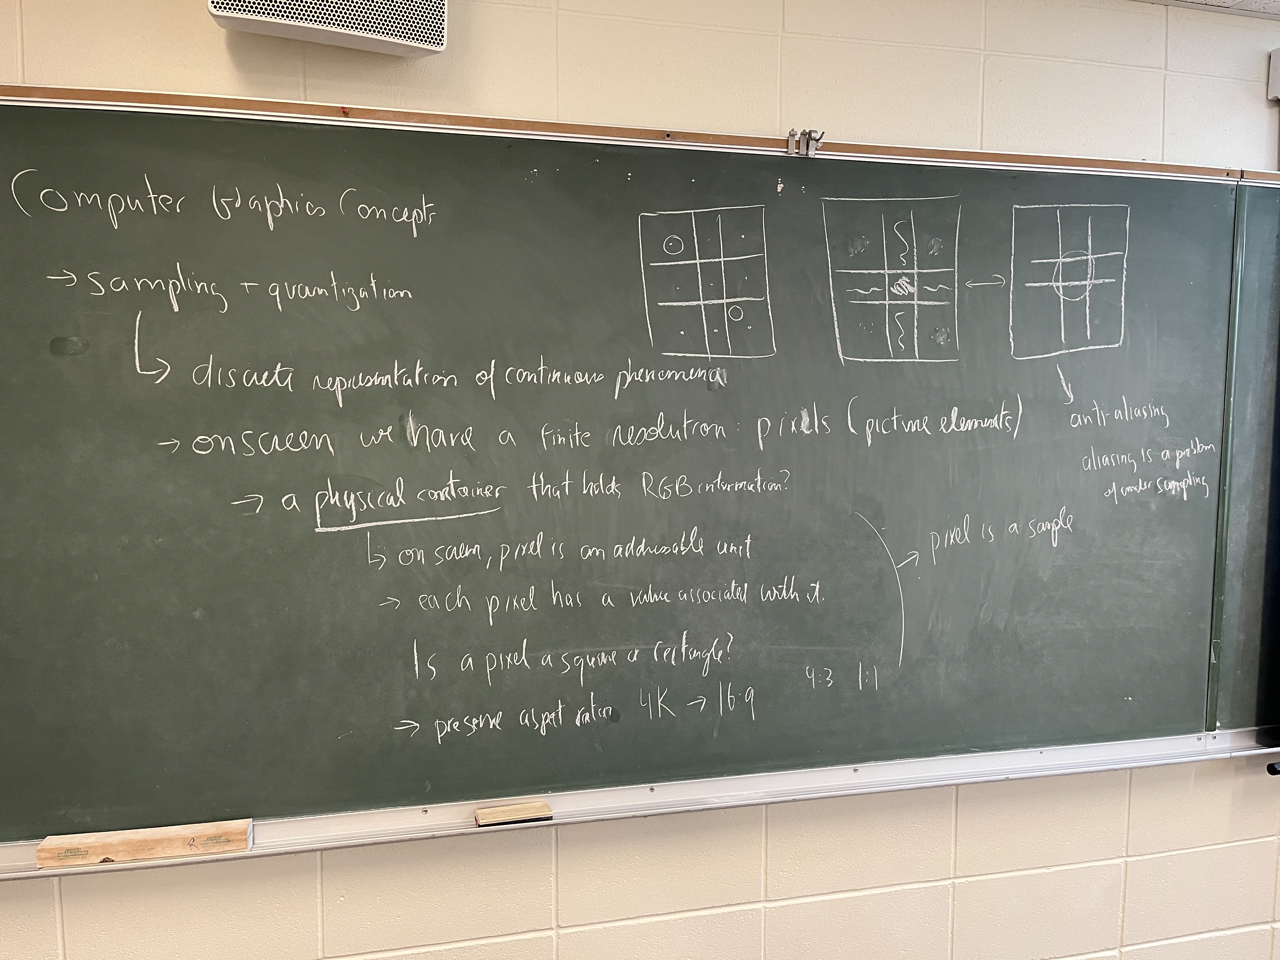 Computer Graphics Concepts
→ sampling + quantization
↳ discrete representation of continuous phenomena
→ onscreen we have a finite resolution: pixels (picture elements)
→ a physical container that holds RGB information?
↳ on screen, pixel is an addressable unit
→ each pixel has a value associated with it.
Is a pixel a square or rectangle?
→ preserve aspect ratio 4K → 16:9
4:3 1:1
→ pixel is a sample
anti-aliasing
aliasing is a problem
of under sampling